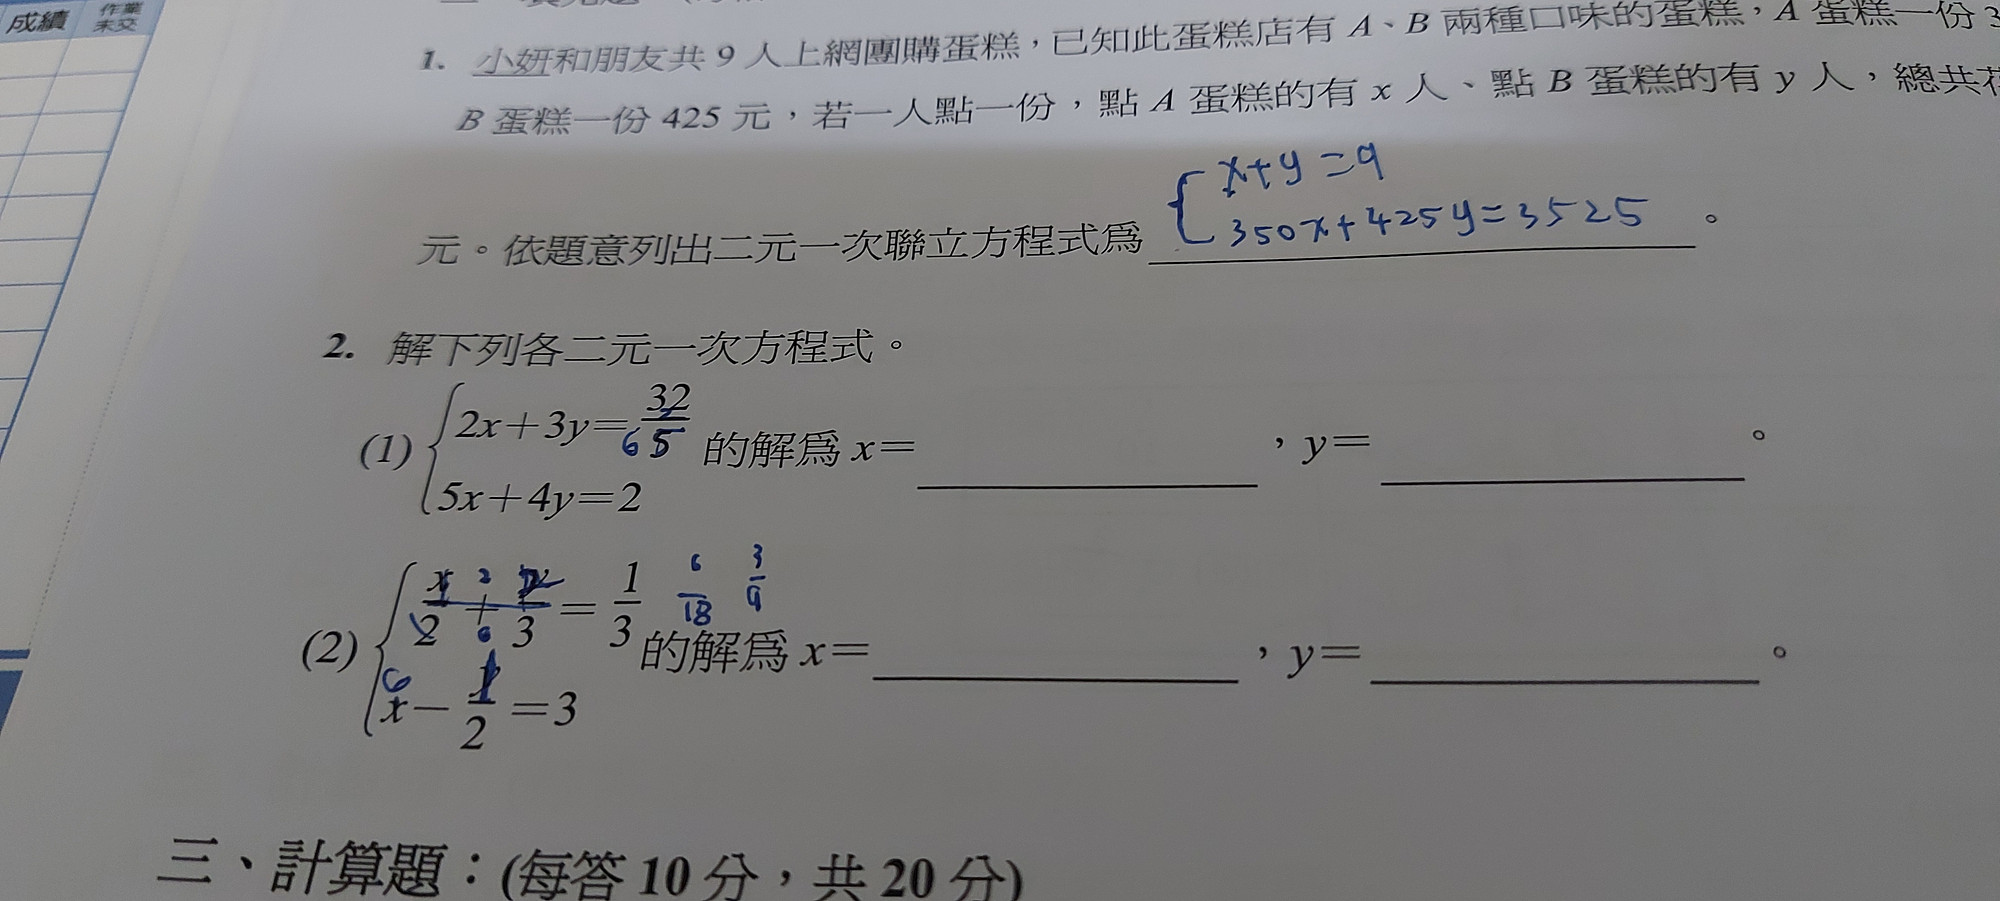 成績 作業未交
1. 小妍和朋友共 9 人上網團購蛋糕，已知此蛋糕店有 A、B 兩種口味的蛋糕，A 蛋糕一份 3
B 蛋糕一份 425 元，若一人點一份，點 A 蛋糕的有 x 人、點 B 蛋糕的有 y 人，總共花
x+y=9
元。依題意列出二元一次聯立方程式為 350x+425y=3525 。
2. 解下列各二元一次方程式。
(1) 2x+3y=32/5 的解為 x= ，y= 。
6
5x+4y=2
(2) x/2 + y/3 = 1/3 6/18 3/9 的解為 x= ，y= 。
x-y/2=3
三、計算題：(每答 10 分，共 20 分)